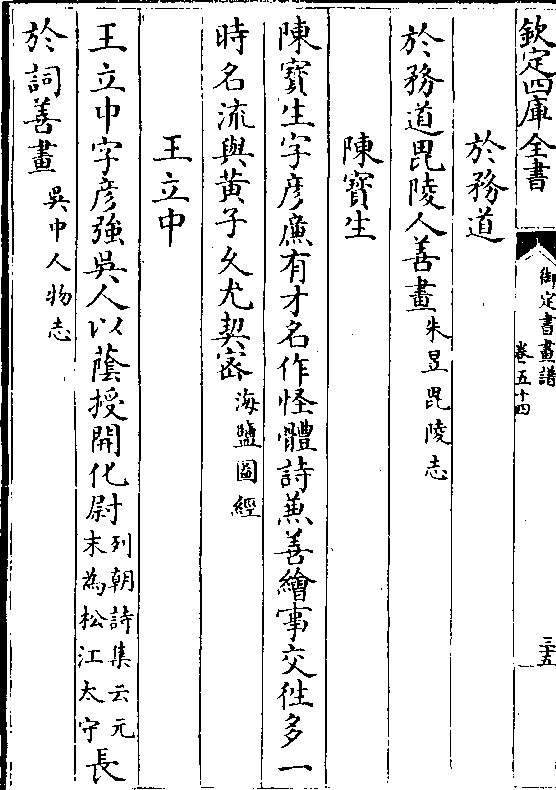 欽定四庫全書
御定書畫譜
卷五十四
三五
於務道
於務道毘陵人善畫朱昱毘陵志
陳寳生
陳寳生字彦廉有才名作怪體詩兼善繪事交徃多一
時名流與黄子久尤契密海鹽圖經
王立中
王立中字彦強吳人以蔭授開化尉列朝詩集云元末為松江太守長
於詞善畫吳中人物志